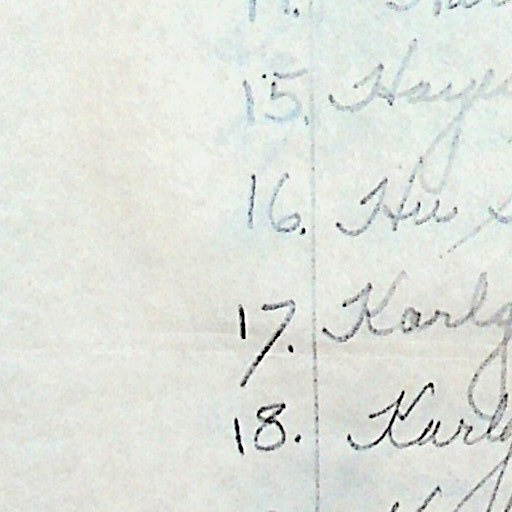 15. Haye
16. Hu S
17. Karlg
18. Karlg